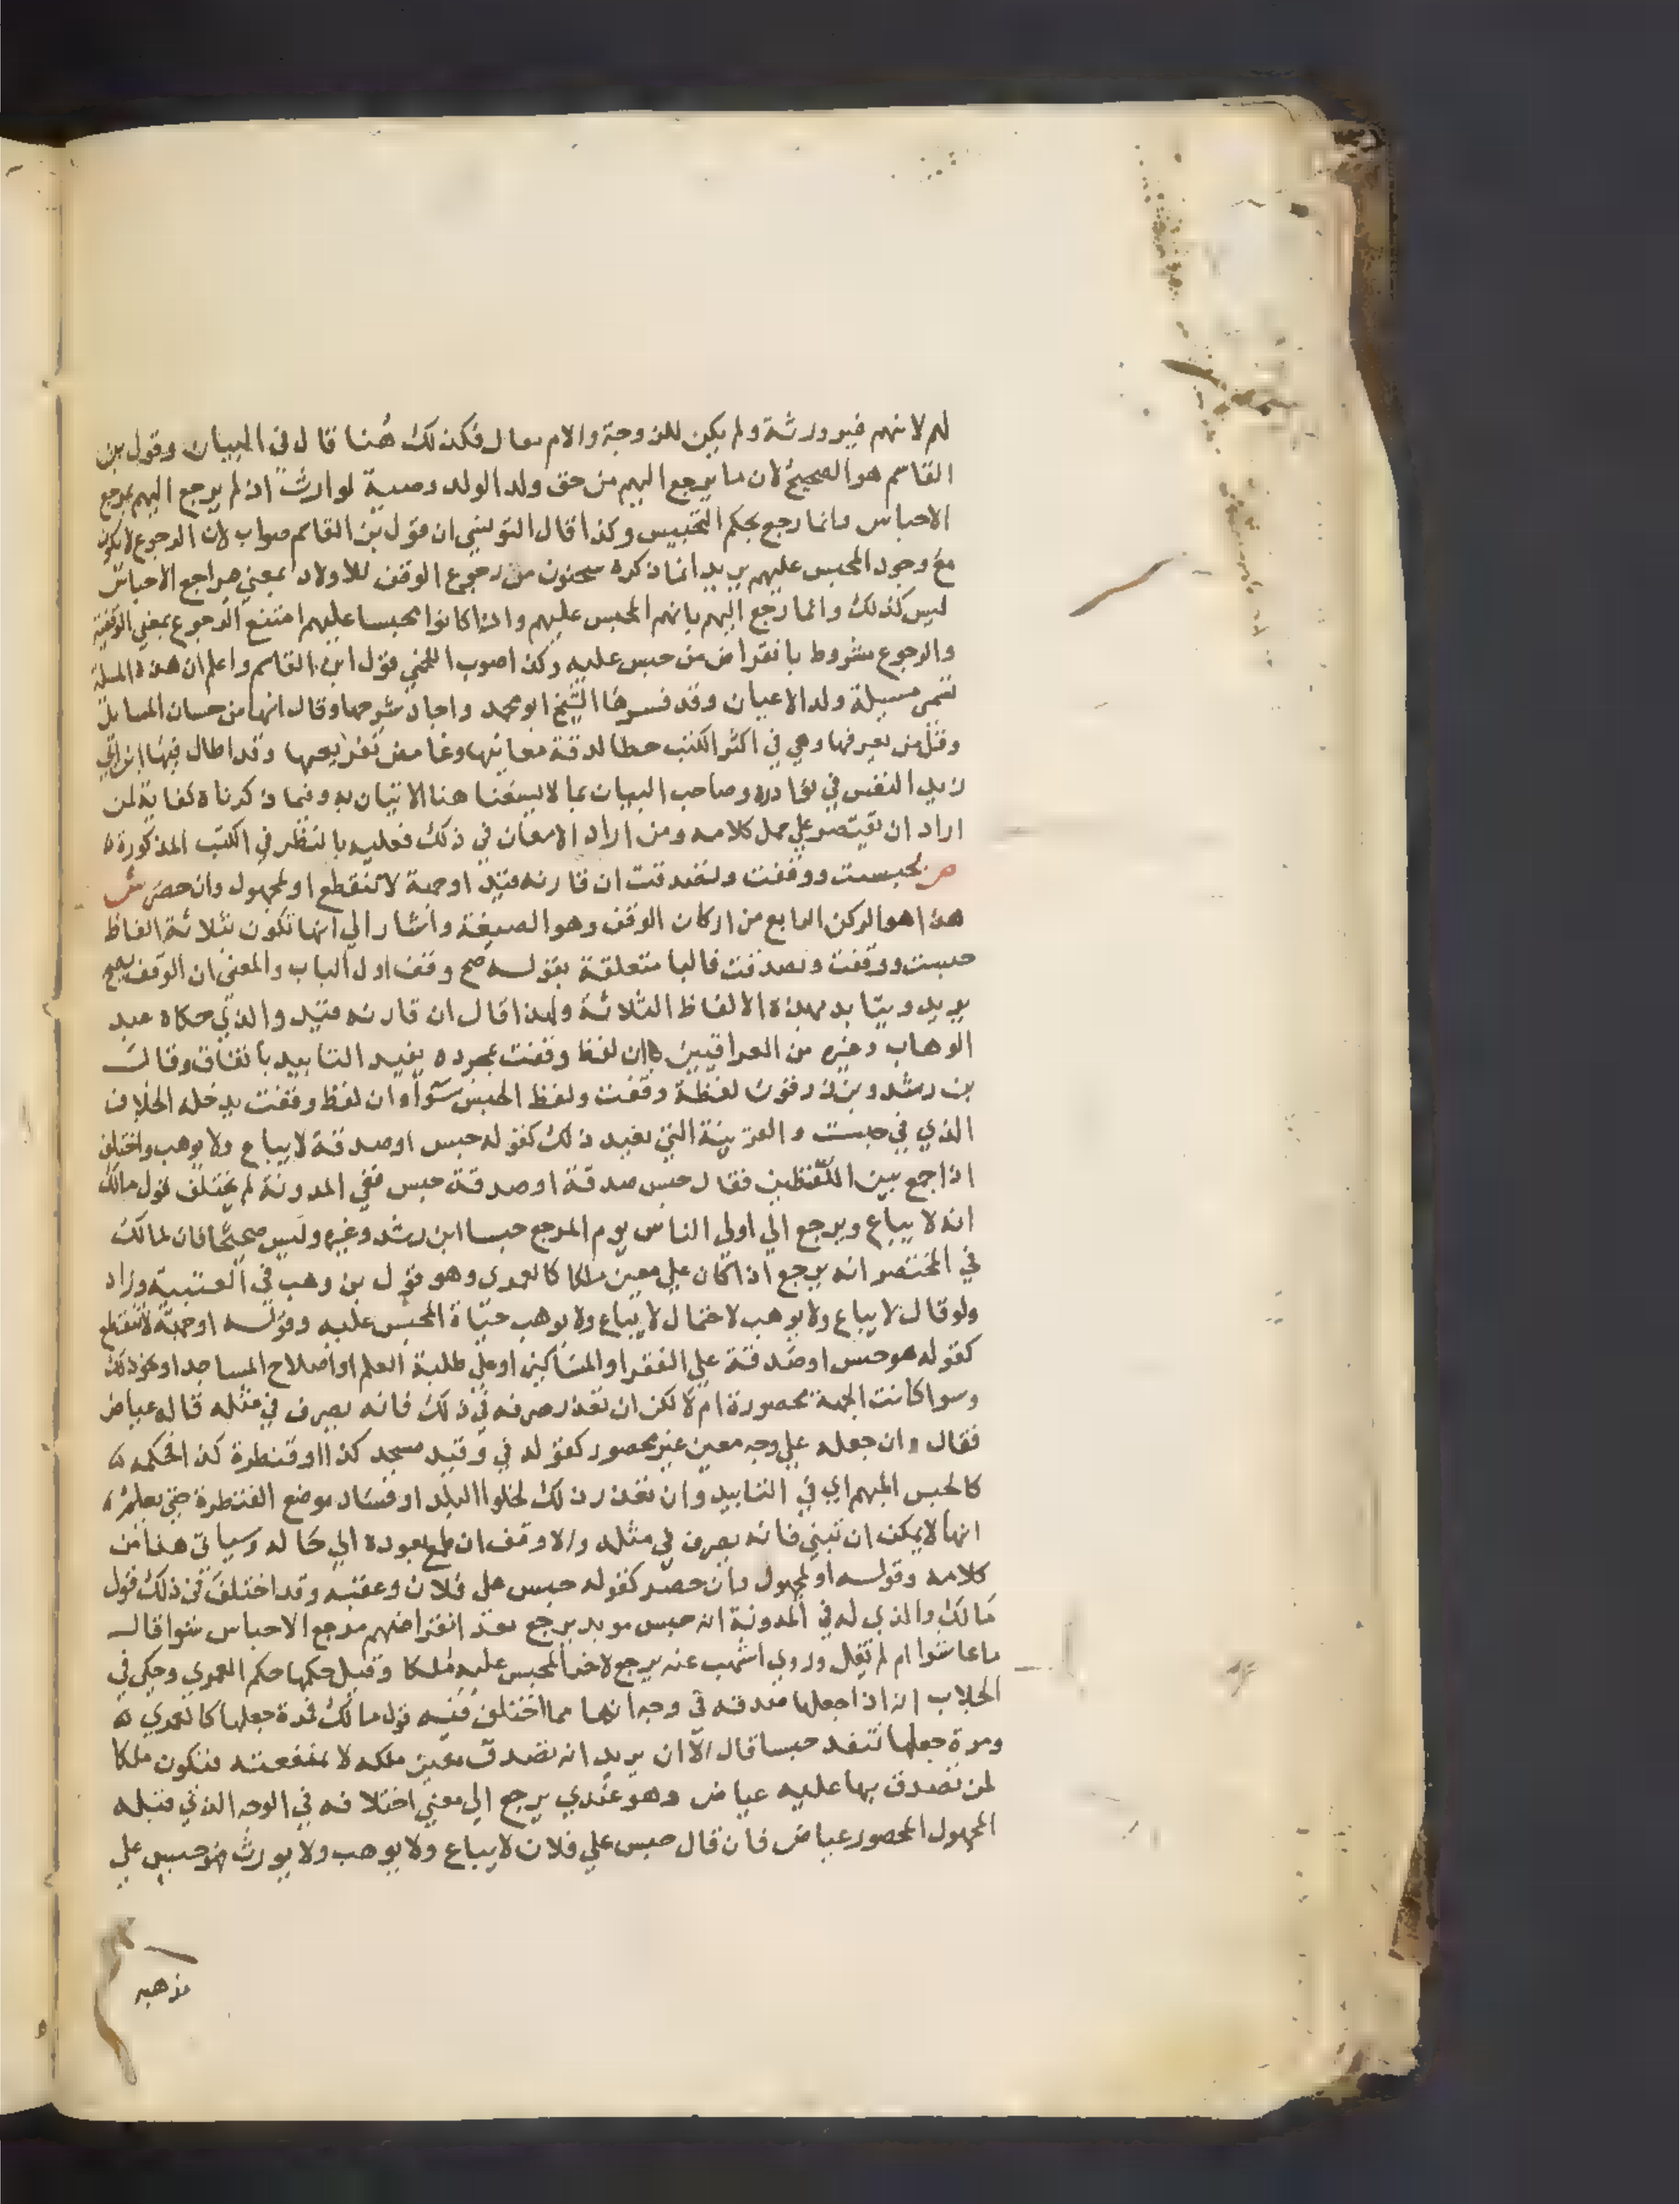 لهم لانهم غير ورثة ولم يكن للزوجة والام مقال فكذلك هنا قال في البيان وقول بن
القاسم هو الصحيح لان ما يرجع اليهم من حق ولد الولد وصية لوارث اذ لم يرجع اليهم بمرجع
الاحباس وانما رجع بحكم التحبيس وكذا قال التونسي ان قول بن القاسم صواب لان الرجوع لا يكون
مع وجود المحبس عليهم يريد انما ذكره سحنون من رجوع الوقف للاولاد بمعني مراجع الاحباس
ليس كذلك وانما رجع اليهم بانهم المحبس عليهم واذا كانوا محبسا عليهم امتنع الرجوع بمعني الوقفية
والرجوع مشروط بانقراض من حبس عليه وكذا صوب اللخمي قول ابن القاسم واعلم ان هذه المسلة
تسمي مسيلة ولد الاعيان وقد فسرها الشيخ ابو محمد واجاد شرحها وقال انها من حسان المسايل
وقل من يعرفها وهي في اكثر الكتب خطا لدقة معانيها وغامض تفريعها وقد اطال فيها ابن ابي
زيد النفس في نوادره وصاحب البيان بما لا يسعنا هنا الاتيان به وفيما ذكرناه كفاية لمن
اراد ان يقتصر علي حل كلامه ومن اراد الامعان في ذلك فعليه بالنظر في الكتب المذكورة ه
ص بحبست ووقفت وتصدقت ان قارنه قيد او جهة لا تنقطع او لمجهول وان حصر ش
هذا هو الركن الرابع من اركان الوقف وهو الصيغة واشار الي انها تكون بثلاثة الفاظ
حبست ووقفت وتصدقت فالبا متعلقة بقوله صح وقف اول الباب والمعني ان الوقف يصح
يريد ويتابد بهذه الالفاظ الثلاثة ولهذا قال ان قارنه قيد والذي حكاه عبد
الوهاب وغيره من العراقيين ان لفظ وقفت بمجرده يفيد التابيد باتفاق وقال
بن رشد وبن زرقون لفظة وقفت ولفظ الحبس سوا وان لفظ وقفت يدخله الخلاف
الذي في حبست والقرينة التي تفيد ذلك كقوله حبس او صدقة لا يباع ولا يوهب واختلف
اذا جمع بين اللفظين فقال حبس صدقة او صدقة حبس ففي المدونة لم يختلف قول مالك
انه لا يباع ويرجع الي اولي الناس يوم المرجع حبسا ابن رشد وغيره وليس صحيحا فان لمالك
في المختصر انه يرجع اذا كان علي معين ملكا كالعمري وهو قول بن وهب في العتبية وزاد
ولو قال لا يباع ولا يوهب لاحتمال لا يباع ولا يوهب حياة المحبس عليه وقوله او جهة لا تنقطع
كقوله هو حبس او صدقة علي الفقرا والمساكين او علي طلبة العلم او اصلاح المساجد او نحو ذلك
وسوا كانت الجهة محصورة ام لا لكن ان تعذر صرفه في ذلك فانه يصرف في مثله قاله عياض
فقال وان جعله علي وجه معين غير محصور كقوله في وقيد مسجد كذا او قنطرة كذا فحكمه ه
كالحبس المبهم اي في التابيد وان تعذر ذلك لخلوا البلد او فساد موضع القنطرة حتي يعلم ه
انها لا يمكن ان تبني فانه يصرف في مثله والا وقف ان طمع بعوده الي حاله وسياتي هذا من
كلامه وقوله او لمجهول وان حصر كقوله حبس علي فلان وعقبه وقد اختلف في ذلك قول
مالك والذي له في المدونة انه حبس موبد يرجع بعد انقراضهم مرجع الاحباس سوا قال
ما عاشوا ام لم يقل وروي اشهب عنه يرجع لاخر المحبس عليه ملكا وقيل حكمها حكم العمري وحكي في
الجلاب انه اذا جعلها صدقة في وجه انها مما اختلف فيه قول مالك فمرة جعلها كالعمري ه
ومرة جعلها تنفذ حبسا قال الا ان يريد انه تصدق بعين ملكه لا بمنفعته فتكون ملكا
لمن تصدق بها عليه عياض وهو عندي يرجع الي معني اختلافه في الوجه الذي قبله
المجهول المحصور عياض فان قال حبس علي فلان لا يباع ولا يوهب ولا يورث فهو حبس علي
مذهبه